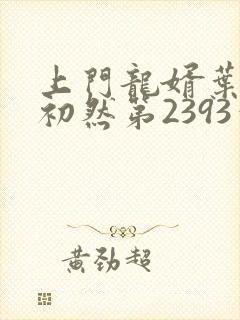 上門龍婿葉
初然第2393
黃勁超